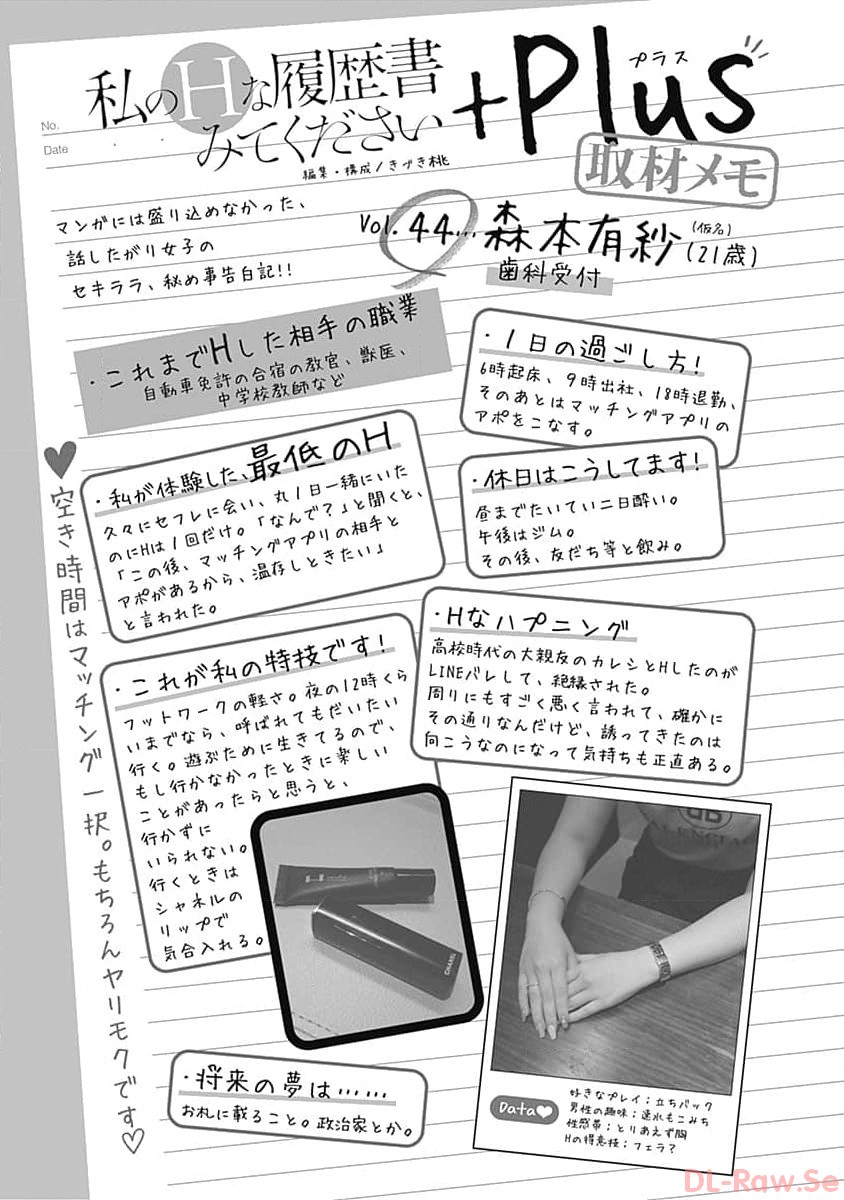 No.
Date
私のHな履歴書
みてください
+Plus
プラス
編集・構成/きづき桃
取材メモ
マンガには盛り込めなかった、
話したがり女子の
セキララ、秘め事告白記!!
Vol.44…森本有紗(仮名)(21歳)
歯科受付
・これまでHした相手の職業
自動車免許の合宿の教官、獣医、
中学校教師など
・1日の過ごし方!
6時起床、9時出社、18時退勤、
そのあとはマッチングアプリの
アポをこなす。
・私が体験した、最低のH
久々にセフレに会い、丸1日一緒にいた
のにHは1回だけ。「なんで?」と聞くと、
「この後、マッチングアプリの相手と
アポがあるから、温存しときたい」
と言われた。
・休日はこうしてます!
昼までたいてい二日酔い。
午後はジム。
その後、友だち等と飲み。
♥空き時間はマッチング一択。もちろんヤリモクです♡
・これが私の特技です!
フットワークの軽さ。夜の12時くら
いまでなら、呼ばれてもだいたい
行く。遊ぶために生きてるので、
もし行かなかったときに楽しい
ことがあったらと思うと、
行かずに
いられない。
行くときは
シャネルの
リップで
気合入れる。
・Hなハプニング
高校時代の大親友のカレシとHしたのが
LINEバレして、絶縁された。
周りにもすごく悪く言われて、確かに
その通りなんだけど、誘ってきたのは
向こうなのになって気持ちも正直ある。
CHANEL
・将来の夢は……
お札に載ること。政治家とか。
Data♥
好きなプレイ;立ちバック
男性の趣味;速水もこみち
性感帯;とりあえず胸
Hの得意技;フェラ?
DL-Raw.Se